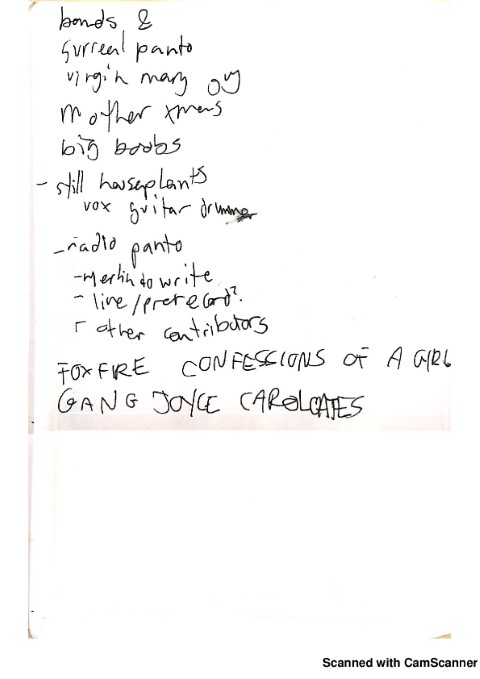 bands &
surreal panto
virgin mary
mother xmas
big boobs
- still houseplants
vox guitar drums
- radio panto
- Merlin to write
- live/prerecord?
- other contributors
FOXFIRE CONFESSIONS OF A GIRL
GANG JOYCE CAROL OATES
Scanned with CamScanner